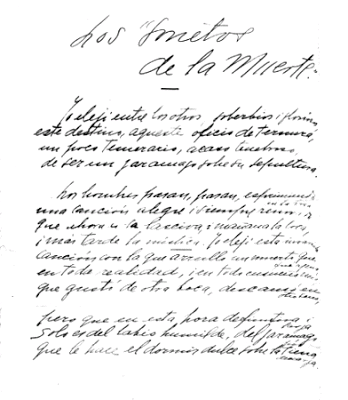 Los Sonetos
de la Muerte.
Yo elejí entre los otros, soberbios i
este destino, aqueste oficio de ternura,
un poco temerario, acaso
de ser un jaramago sobre su sepultura.
Los hombres pasan, pasan, exprimiendo en la
una canción alegre i siempre
que ahora es la lasciva, i mañana la loca,
i más tarde la mística. Yo elejí esta
canción con la que arrullo un muerto que
en toda realidad, i en todo
que gustó de otra boca, descansó en
pero que en esta hora definitiva i
sólo es del labio humilde, del jaramago
que le hace el dormir dulce sobre la tierra